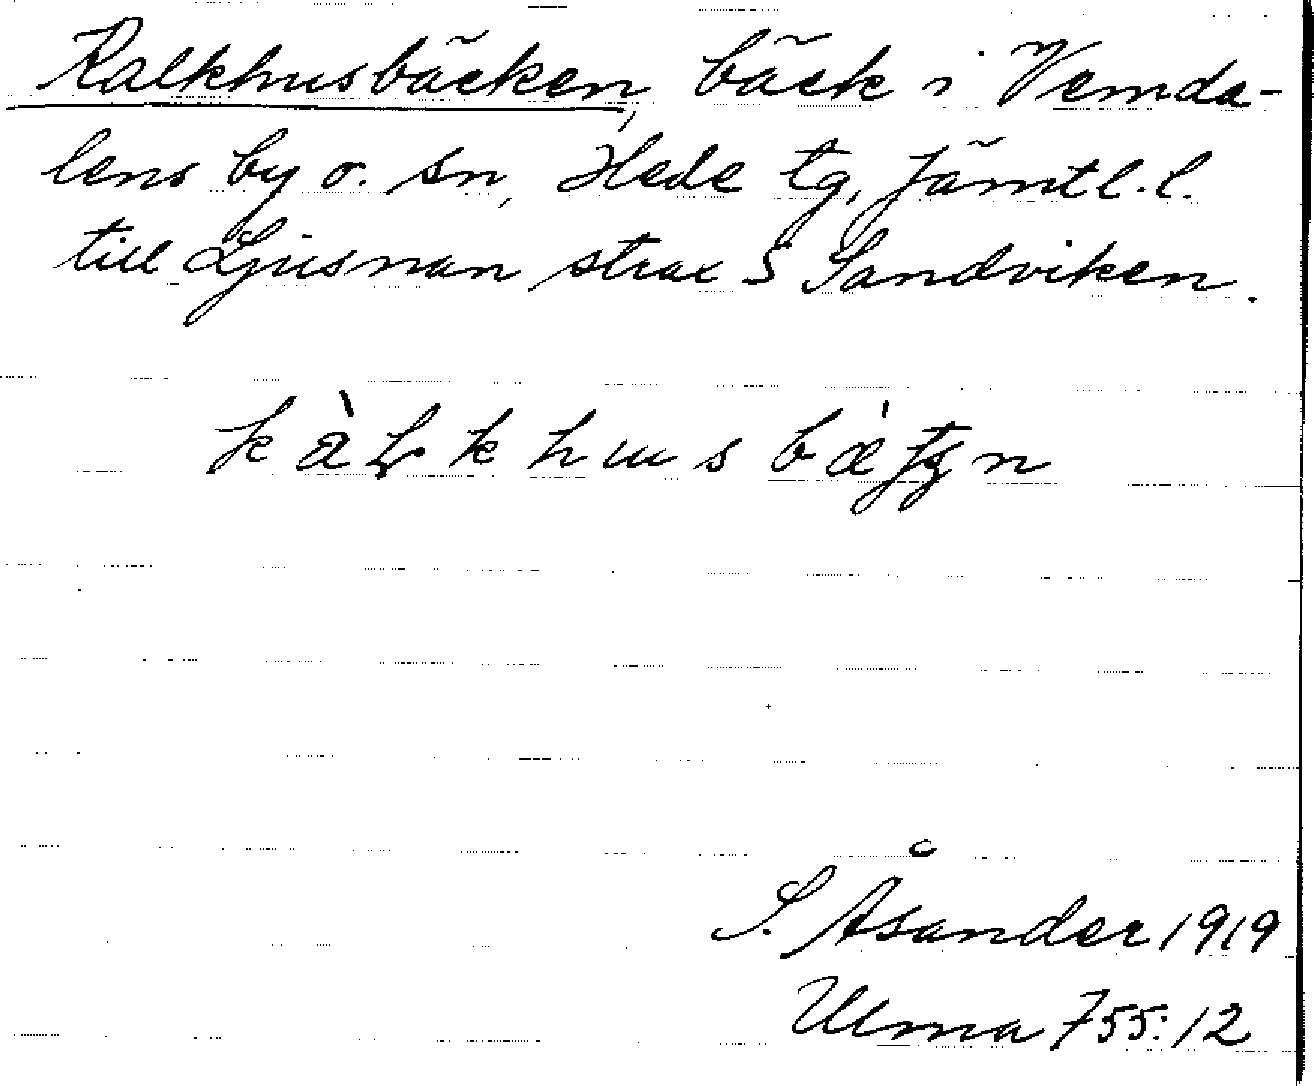 Kalkhusbäcken, bäck i Vemda-
lens by o. sn, Hede tg, Jämtl. l.
till Ljusnan strax S Sandviken.
S. Åsander 1919
Ulma 755:12